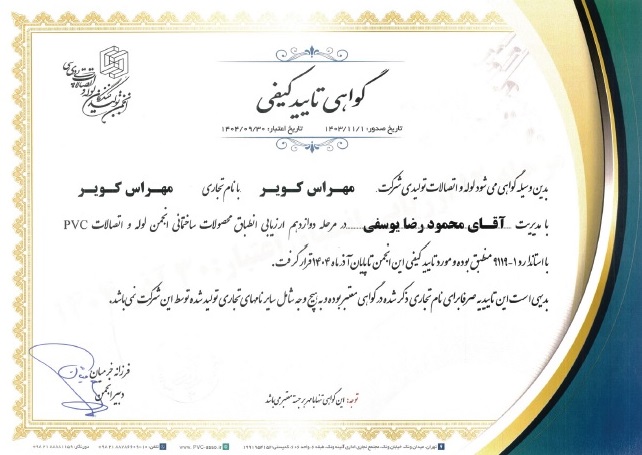 انجمن تولیدکنندگان لوله و اتصالات پی وی سی
گواهی تایید کیفی
تاریخ صدور: ۱۴۰۳/۱۱/۱ تاریخ اعتبار: ۱۴۰۴/۰۹/۳۰
بدین وسیله گواهی می شود لوله و اتصالات تولیدی شرکت مهراس کویر با نام تجاری مهراس کویر
با مدیریت آقای محمود رضا یوسفی در مرحله دوازدهم ارزیابی انطباق محصولات ساختمانی انجمن لوله و اتصالات PVC
با استاندارد ۱-۹۱۱۹ منطبق بوده و مورد تایید کیفی این انجمن تا پایان آذر ماه ۱۴۰۴ قرار گرفت.
بدیهی است این تاییدیه صرفا برای نام تجاری ذکر شده در گواهی معتبر بوده و به هیچ وجه شامل سایر نامهای تجاری تولید شده توسط این شرکت نمی باشد.
فرزانه خرمیان
دبیر انجمن
توجه: این گواهی تنها با مهر برجسته معتبر می باشد
تهران، میدان ونک، خیابان ونک، مجتمع تجاری اداری آئینه ونک، طبقه
www.PVC-asso.ir